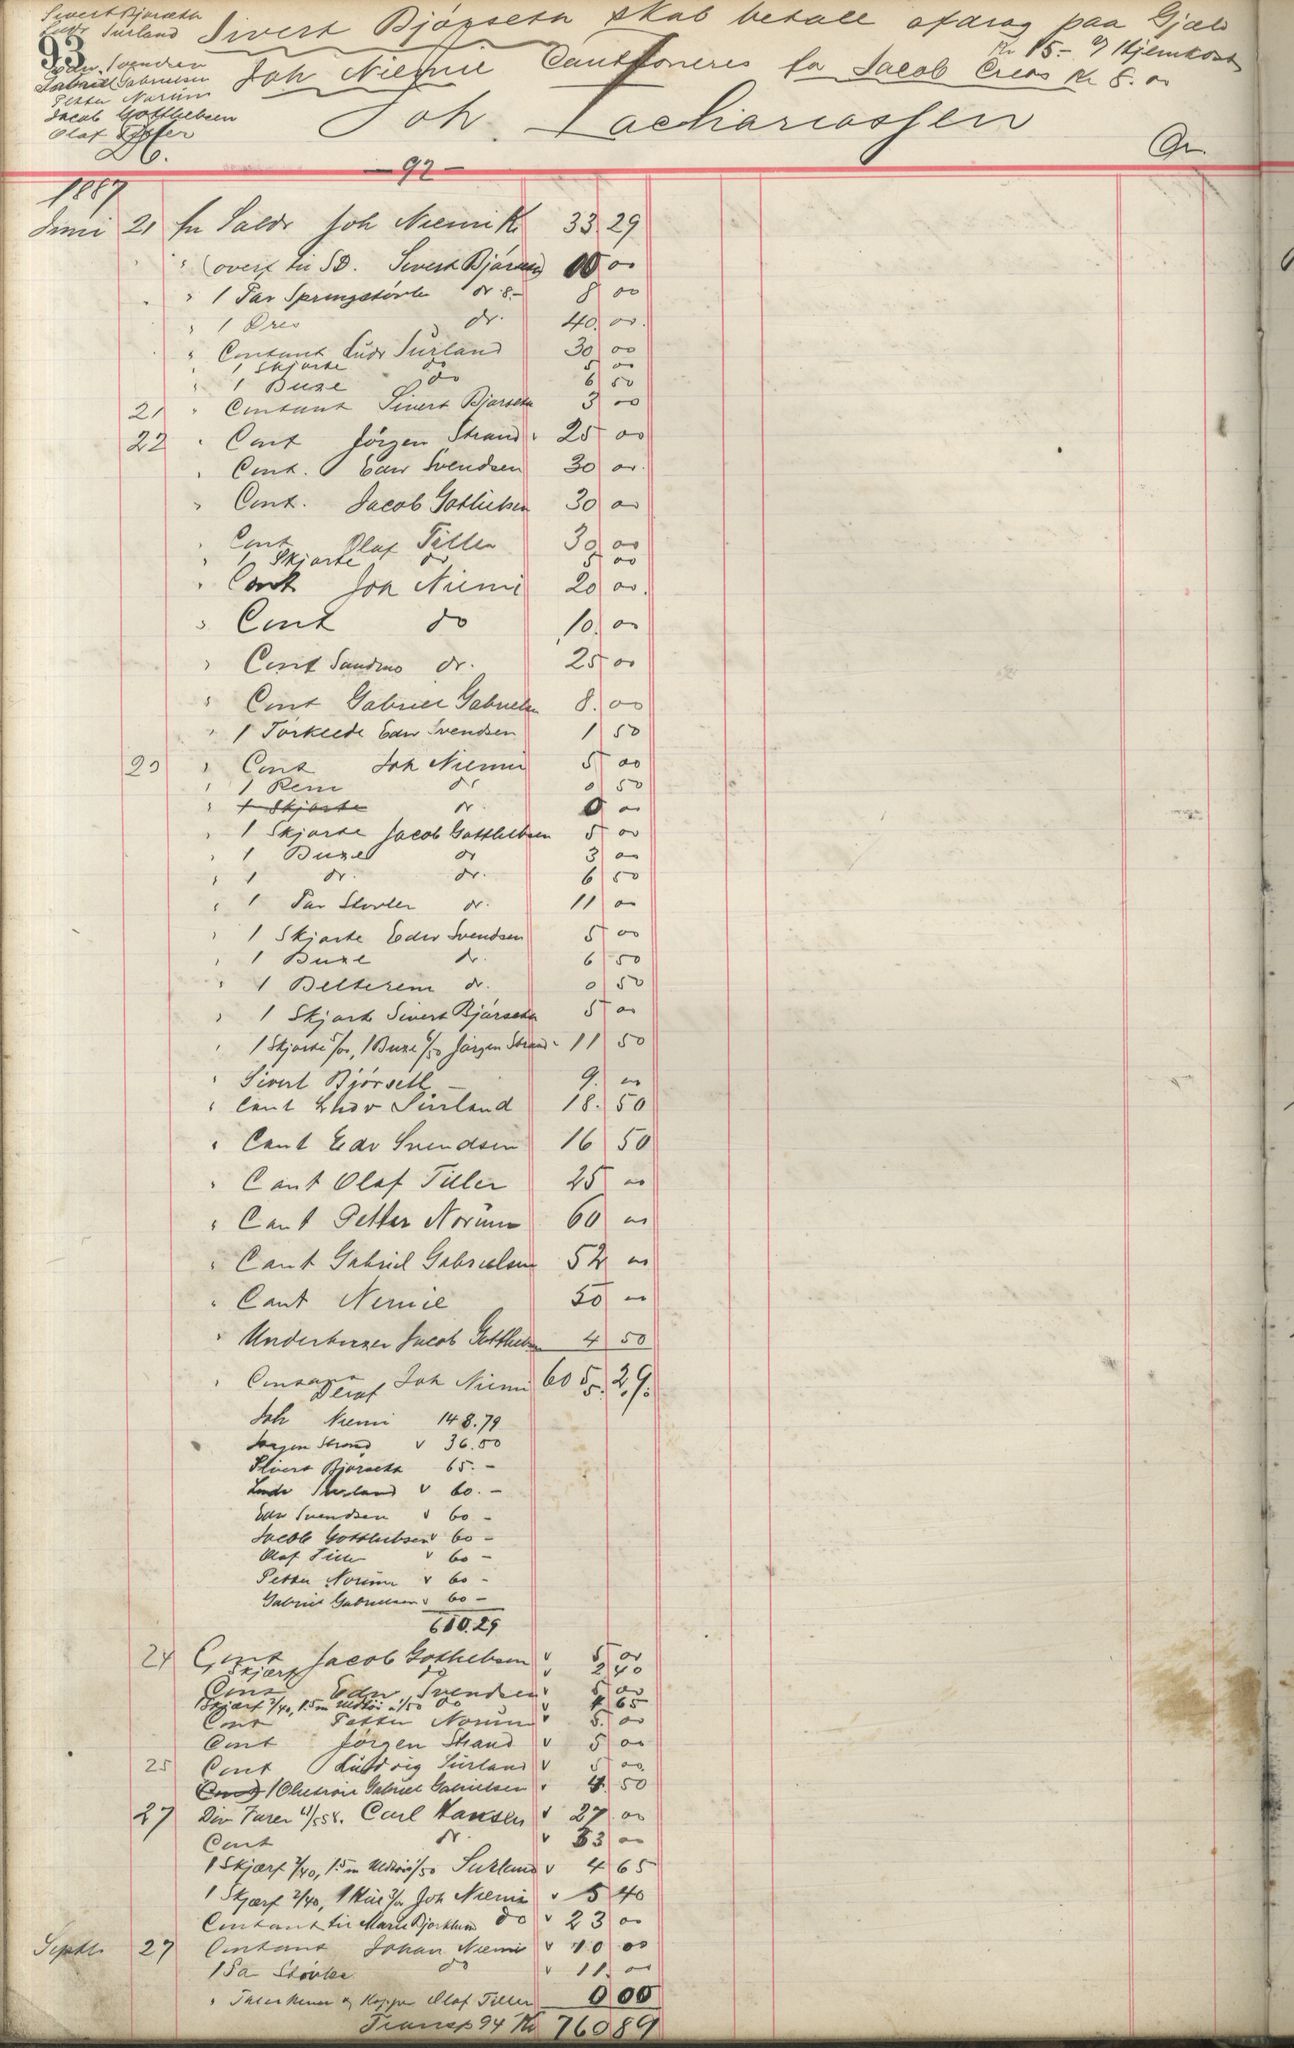 Sivert Bjørseth
Ludv Surland
93
Edw. Svendsen
Gabriel Gabrielsen
Petter Norum
Jacob Gottliebsen
Olaf Tiller
Sivert Bjørseth skal betale afdrag paa Gjæld
Kr 15.- og Hjemkost
Joh Niemie Cautioneres for Jacob Creas Kr 8.00
Joh. Zachariassen
Dr.
Cr.
—92—
1887
Juni 21 fra Saldo Joh Niemi K. 33 29
" (overf til SD. Sivert Bjørseth) 00
" 1 Par Springstøvle do 8.- 8 00
" 1 Dres do. 40. 00.
" Contant Ludv Surland 30 00
" 1 Skjorte do 5 00
" 1 Buxe do 6 50
21 " Contant Sivert Bjørseth 3 00
22 " Cont Jørgen Strand 25 00
" Cont. Edw Svendsen 30 00.
" Cont. Jacob Gotliebsen 30 00
" Cont Olaf Tiller 30 00
" 1 Skjorte do 5 00
" Cont Joh Niemi 20 00.
" Cont do 10. 00
" Cont Sandmo do. 25 00
" Cont Gabriel Gabrielsen 8. 00
" 1 Tørklede Edw Svendsen 1 50
23 " Cont Joh Niemi 5 00
" 1 Rem do 0 50
" 1 Skjorte do. 0 00
" 1 Skjorte Jacob Gottliebsen 5 00
" 1 Buxe do 3 00
" 1 do. do. 6 50
" 1 Par Støvler do. 11 00
" 1 Skjorte Edw Svendsen 5 00
" 1 Buxe do. 6 50
" 1 Belterem do. 0 50
" 1 Skjorte Sivert Bjørseth 5 00
" 1 Skjorte 5/00, 1 Buxe 6/50 Jørgen Strand 11 50
" Sivert Bjørseth — 9. 00
" Cont Ludv Surland 18. 50
" Cont Edv Svendsen 16 50
" Cont Olaf Tiller 25 00
" Cont Petter Norum 60 00
" Cont Gabriel Gabrielsen 52 00
" Cont Nemie 50 00
" Underbuxer Jacob Gottliebsen 4 50
" Contant Joh Niemi 5.
605 29
Deraf
Joh Niemi 148.79
Jørgen Strand v 36.50
Sivert Bjørseth 65.-
Ludv Surland v 60.-
Edw Svendsen v 60 -
Jacob Gottliebsen v 60 -
Olaf Tiller v 60 -
Petter Norum v 60 -
Gabriel Gabrielsen v 60 -
610.29
24 Cont Jacob Gotliebsen v 5 00
1 Skjærf do v 2 40
Cont Edw Svendsen v 5 00
1 Skjærf 2/40, 1.5 m Uldtøi 1/50 do v 4 65
Cont Petter Norum v 5. 00
Cont Jørgen Strand v 5 00
25 Cont Ludvig Surland v 5 00
Cont 1 Olietrøie Gabriel Gabrielsen v 4. 50
27 Div Varer Carl Hansen v 27. 00
Cont do. v 33 00
1 Skjærf 2/40, 1.5 m Uldtøi 1/50 Surland v 4 65
1 Skjærf 2/40, 1 Hue 3/00 Joh Niemi v 5 40
Contant til Marie Bjorklund do v 23 00
Septbr 27 Contant Johan Niemi v 10 00
1 Pa Støvler do v 11. 00
" og Kopper Olaf Tiller 0 00
Transp 94 Kr 760 89